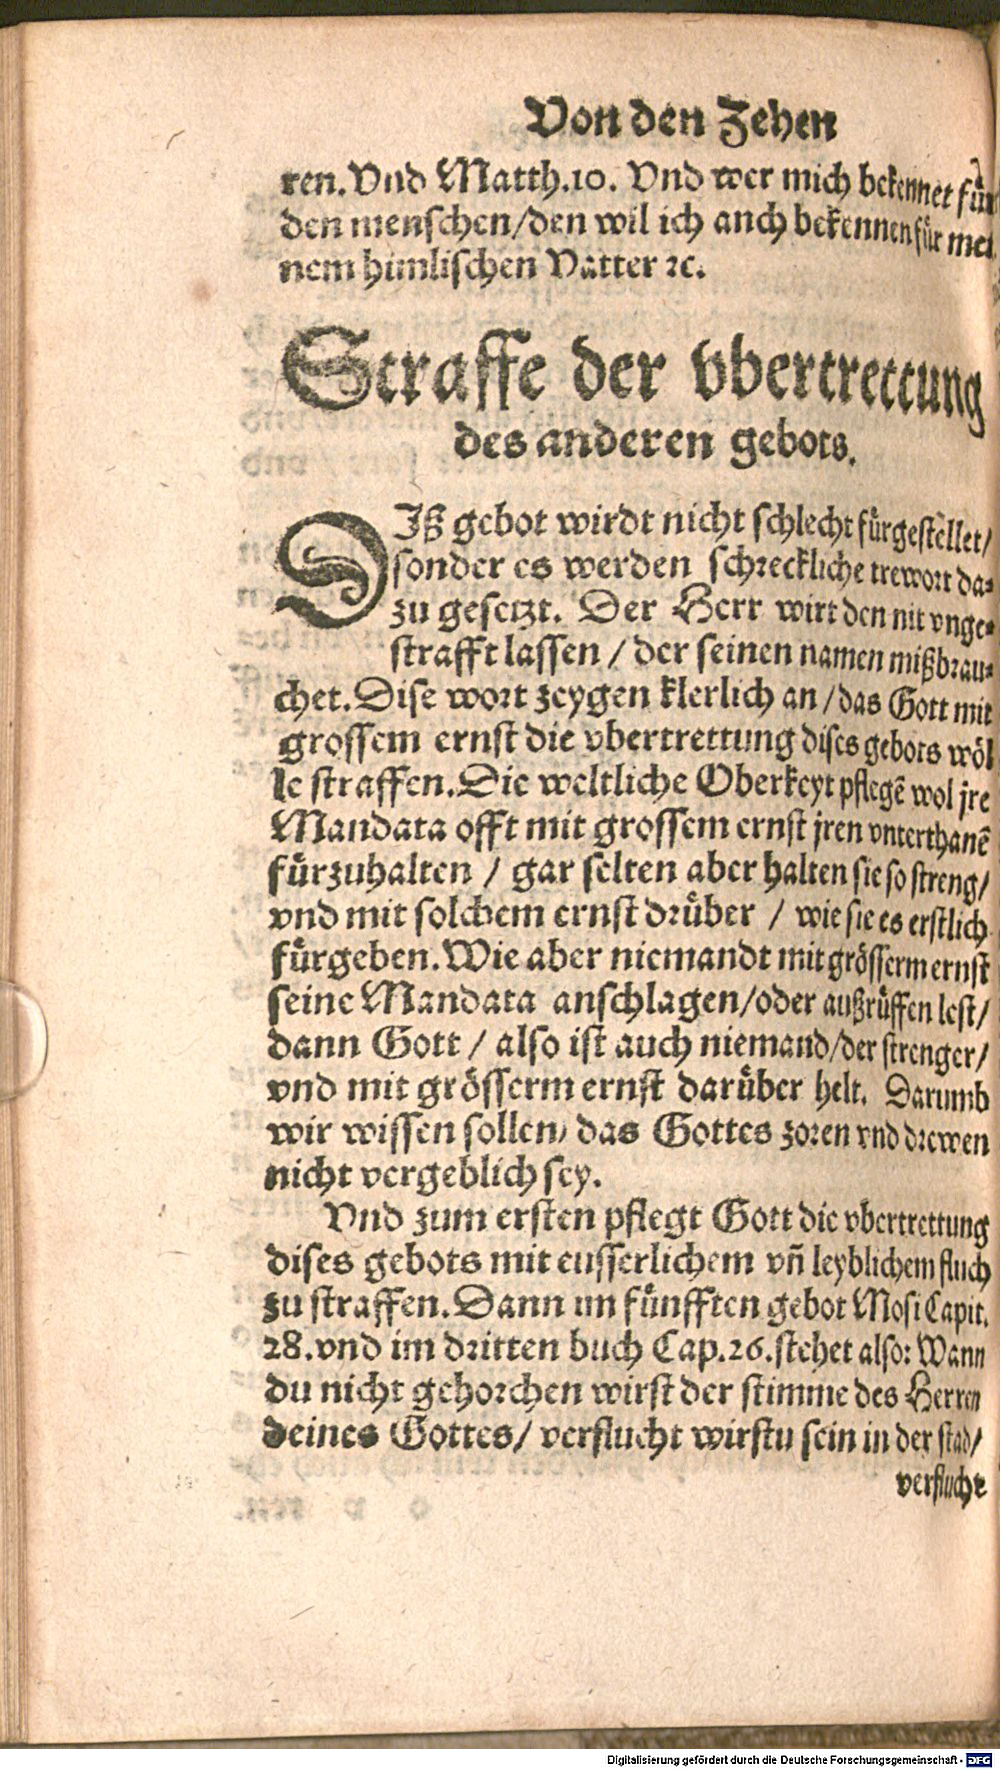 Von den Zehen
ren. Vnd Matth. 10. Vnd wer mich bekennet für
den menschen/den wil ich auch bekennen für mei
nem himlischen Vatter ꝛc.
Straffe der vbertrettung
des anderen gebots.
DIß gebot wirdt nicht schlecht fürgestellet/
sonder es werden schreckliche trewort da-
zu gesetzt. Der Herr wirt den nit vnge-
strafft lassen / der seinen namen mißbrau-
chet. Dise wort zeygen klerlich an / das Gott mit
grossem ernst die vbertrettung dises gebots wöl
le straffen. Die weltliche Oberkeyt pflegẽ wol jre
Mandata offt mit grossem ernst jren vnterthanẽ
fürzuhalten / gar selten aber halten sie so streng/
vnd mit solchem ernst drüber / wie sie es erstlich
fürgeben. Wie aber niemandt mit grösserm ernst
seine Mandata anschlagen/oder außrüffen lest/
dann Gott / also ist auch niemand/der strenger/
vnd mit grösserm ernst darüber helt. Darumb
wir wissen sollen, das Gottes zoren vnd drewen
nicht vergeblich sey.
Vnd zum ersten pflegt Gott die vbertrettung
dises gebots mit eusserlichem vñ leyblichem fluch
zu straffen. Dann im fünfften gebot Mosi Capit.
28. vnd im dritten buch Cap. 26. stehet also: Wann
du nicht gehorchen wirst der stimme des Herren
deines Gottes/ verflucht wirstu sein in der stad/
verflucht
Digitalisierung gefördert durch die Deutsche Forschungsgemeinschaft - DFG